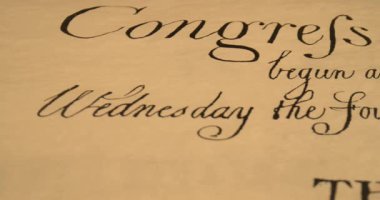 Congreſs
begun a
Wednesday the fou
TH